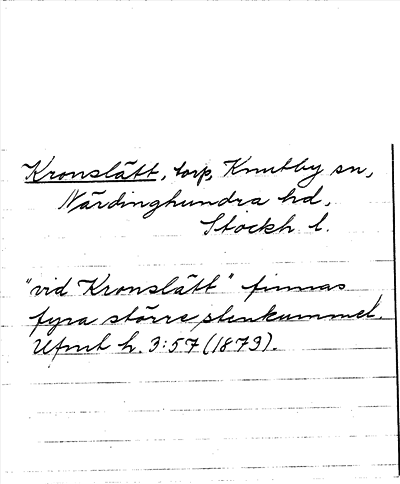 Kronslätt, torp, Knutby sn,
Närdinghundra hd,
Stockh l.
"vid Kronslätt" finnas
fyra större stenkummel.
Ufmt h. 3:57 (1873).